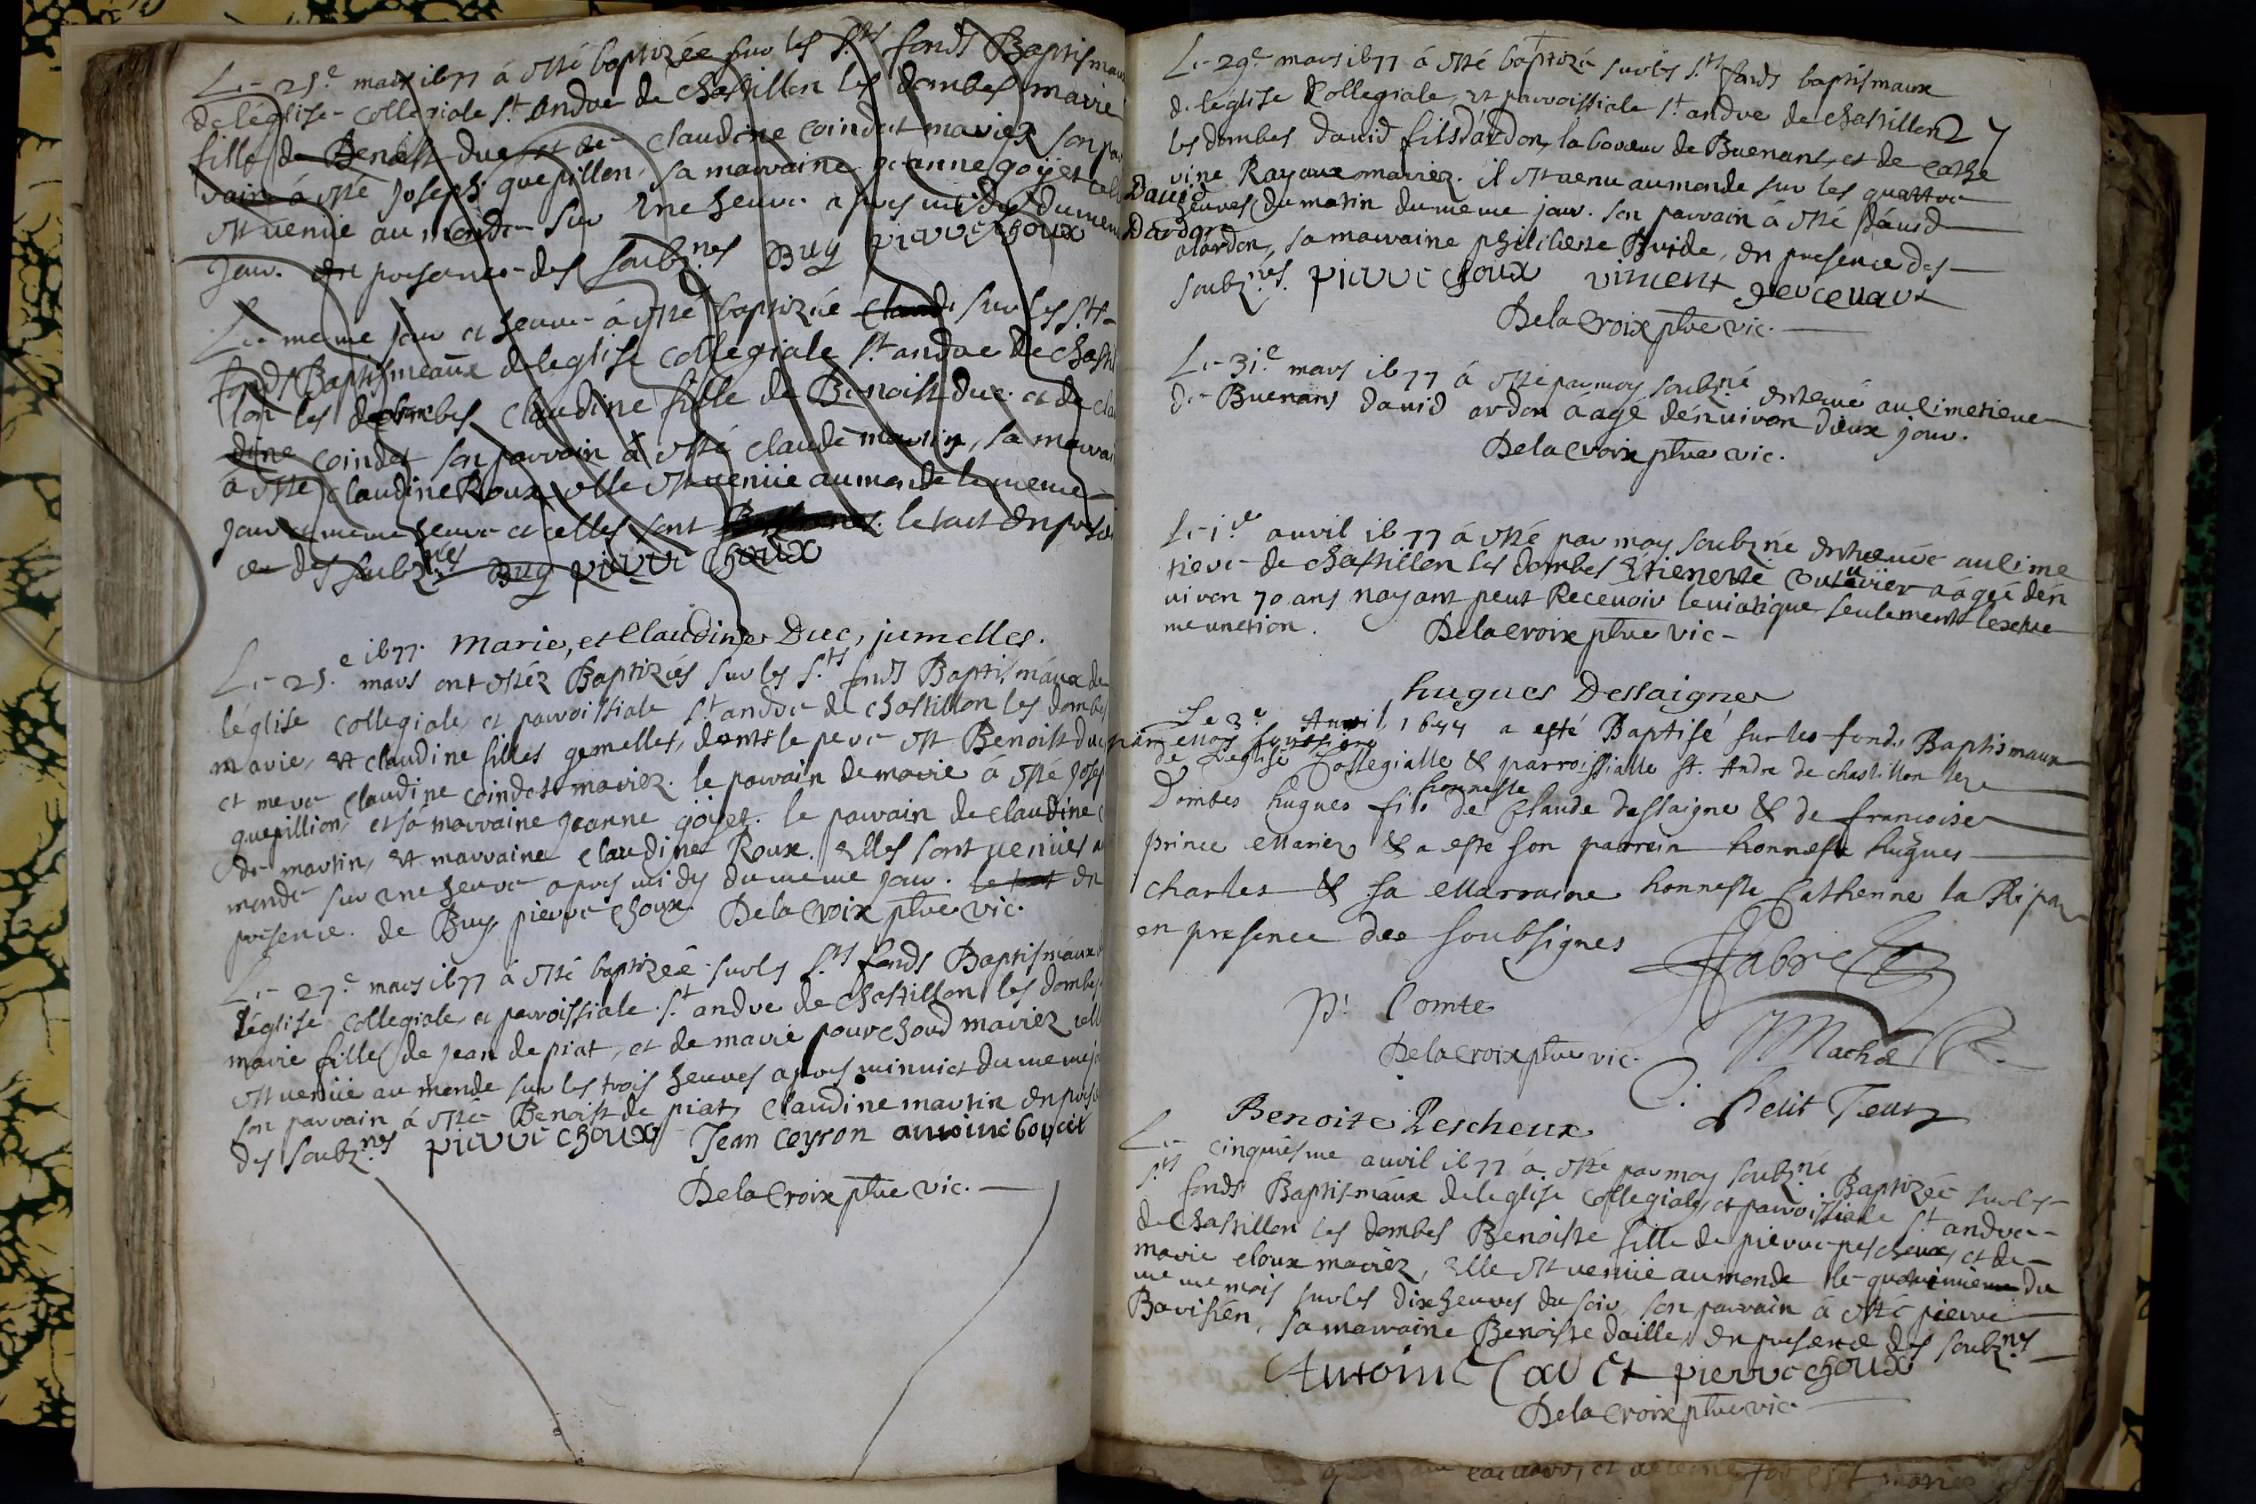 Le 25e mars 1677 à esté baptizée sur les Sts fonds Baptismau
de léglise collegiale St. andre de chastillon les dombes marie
fille de Benoist duc et de claudine coindet mariez son par
rain à esté Joseph quepillon, sa marraine jeanne goÿet elle
est venue au monde sur une heure apres midy du mem
jour. en presence des soubznes Buy pierre choux
Le meme jour et heure à esté baptizée claudi sur les Sts
fonds Baptismeaux de leglise collegiale St andre de chasti
lon les dombes claudine fille de Benoist duc et de clau
dine coindet son parrain à esté claude martin, sa marrai
à esté claudine Roux elle est venüe au monde le meme
jour et meme heure et celles sont le tout en presen
ce des soubznes Buy pierre choux
Marie, et Claudine Duc, jumelles.
Le 25e 1677. mars ont estéz Baptizés sur les Sts fonds Baptismáux de
léglise collegiale, et parroissiale St andre de chastillon les dombes
marie, et claudine filles gemelles, dont le pere est Benoist duc
et mere claudine coindet mariez. le parrain de marie à esté Josep
quepillion, et sa marraine jeanne goÿet. le parrain de claudine c
de martin, et marraine claudine Roux. Elles sont venües a
monde sur une heure apres midy du meme jour. le tout en
presence. de Buy, pierre choux. Delacroix ptre vic.
Le 27e mars 1677 à esté baptizée sur les Sts fonds Baptismáux
léglise collegiale, et parroissiale St andre de chastillon les dombes
marie fille de jean de piat, et de marie pourchoud mariez elle
est venüe au monde sur les trois heures apres minuict du meme j
son parrain à esté Benoist de piat, claudine martin en prese
des soubznes pierre choux Jean Ceyron antoine boucit
Delacroix ptre vic.
Le 29e mars 1677 à esté baptizé sur les Sts fonds baptismaux
de léglise Collegiale, et parroissiale St andre de chastillon
27
les dombes david fils dardon, laboureur de Buenans, et de cathe
rine Rayaux mariez. il est venu au monde sur les quattre
David
Dardon
heures du matin du meme jour. son parrain à esté david
ardon, sa marraine philiberte Buide, en presence des
soubznes. pierre choux vincent
Delacroix ptre vic.
Le 31e mars 1677 à esté par moy soubzné enterré au cimetiere
de Buenans david ardon áagé dénviron deux jour.
Delacroix ptre vic.
Le 1er avril 1677 à esté par moy soubzné enterrée au cime
tiere de chastillon les dombes Etienette couturier aágée dén
viron 70 ans nayant peut Recevoir le viatique seulement lextre
me unction. Delacroix ptre vic
hugues Dessaigne
Le 3e Auril 1677 a esté Baptisé sur les fonds Baptismaux
par moy soussigné
de Leglise Collegialle & parroissialle st. Andre de chastillon les
honneste
Dombes hugues fils de Claude dessaigne & de francoise
prince Mariez & a este son parrein honneste hugues
charles & sa Marraine honneste Catherine la Ripa
en presence des soubsignes Fabre
p. Comte
Delacroix ptre vic. Machd
C. Petit Jean
Benoite Pescheux
Le cinquiesme avril 1677 à esté par moy soubzné Baptizée sur les
Sts fonds Baptismáux de leglise Collegiale, et parroissiale St andre
de chastillon les dombes Benoiste fille de pierre pescheux, et de
marie cloux mariez, Elle est venüe au monde le quatrieme du
meme mois sur les dix heures du soir, son parrain à esté pierre
Barisien, sa marraine Benoiste daille, en presence des soubznes
Antoine Cavet pierre choux
Delacroix ptre vic